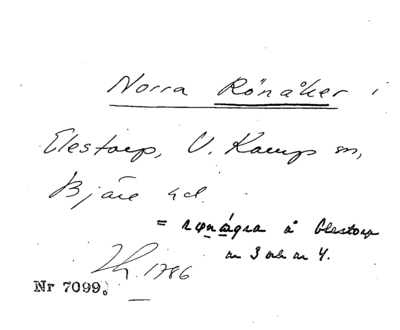 Norra Rönåker i
Elestorp, V. Karups sn,
Bjäre hd.
= rønágra å Elestorp
nr 3 och nr 4.
1786
Nr 7099.